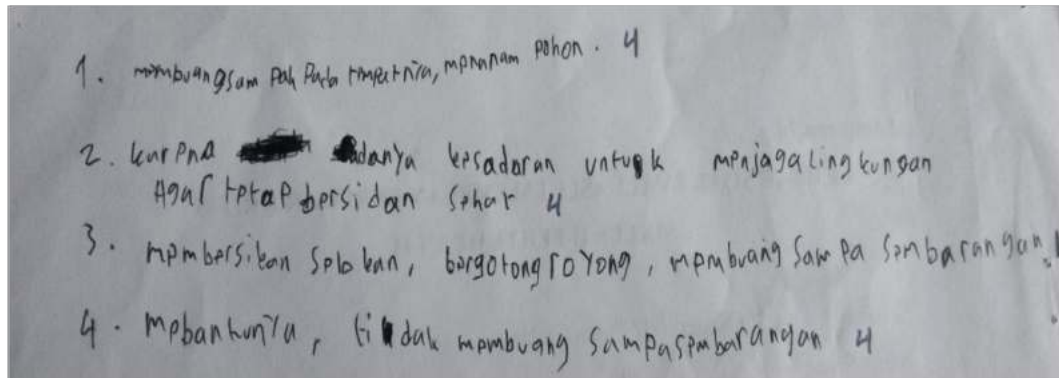 1. membuangsam pah pada tmpatnia, mpnanam pohon. 4
2. karpna adanya kesadaran untuk mpnjagalingkungan
Agar tptap bersidan sehat 4
3. mpmbersikan selokan, bergotongroyong, mpmbuang sampa sembarangan
4. mpbantunya, tidak mpmbuang sampasembarangan 4